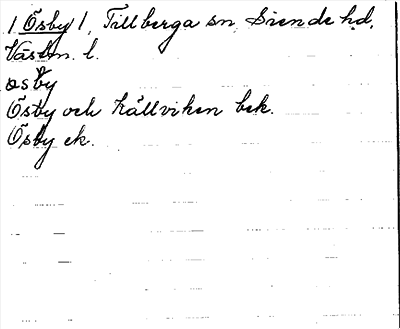 / Ösby /, Tillberga sn, Siende hd,
Västm. l.
osby
Ösby och hållviken bek.
Ösby ek.